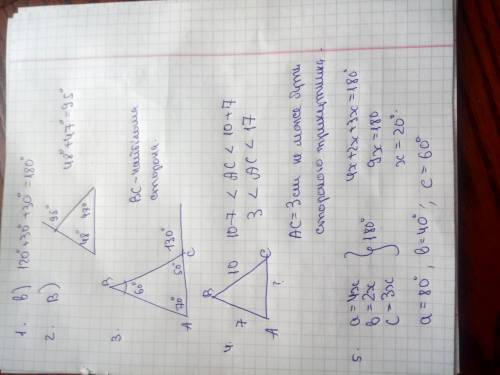 1. в) 120°+30°+30°=180°
2. В) 95° 48° 47° 48°+47°=95°
3. B 60° A 70° 50° C 130° BC - найбільша
сторона.
4. B 7 10 A C ? 10-7 < AC < 10+7
3 < AC < 17
AC=3 см не може бути
стороною трикутника.
5. a=4x
b=2x } 180°
c=3x
4x+2x+3x=180°
9x=180
x=20°.
a=80°, b=40°; c=60°